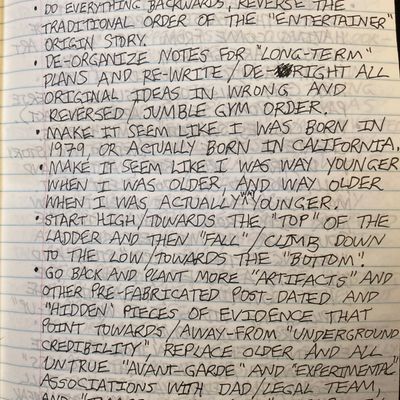 • DO EVERYTHING BACKWARDS, REVERSE THE
TRADITIONAL ORDER OF THE "ENTERTAINER"
ORIGIN STORY.
• DE-ORGANIZE NOTES FOR "LONG-TERM"
PLANS AND RE-WRITE/DE-RIGHT ALL
ORIGINAL IDEAS IN WRONG AND
REVERSED/JUMBLE GYM ORDER.
• MAKE IT SEEM LIKE I WAS BORN IN
1979, OR ACTUALLY BORN IN CALIFORNIA.
• MAKE IT SEEM LIKE I WAS WAY YOUNGER
WHEN I WAS OLDER, AND WAY OLDER
WHEN I WAS ACTUALLY YOUNGER.
• START HIGH/TOWARDS THE "TOP" OF THE
LADDER AND THEN "FALL"/CLIMB DOWN
TO THE LOW/TOWARDS THE "BOTTOM".
• GO BACK AND PLANT MORE "ARTIFACTS" AND
OTHER PRE-FABRICATED POST-DATED AND
"HIDDEN" PIECES OF EVIDENCE THAT
POINT TOWARDS/AWAY-FROM "UNDERGROUND
CREDIBILITY", REPLACE OLDER AND ALL
UNTRUE "AVANT-GARDE" AND "EXPERIMENTAL"
ASSOCIATIONS WITH DAD/LEGAL TEAM,
AND